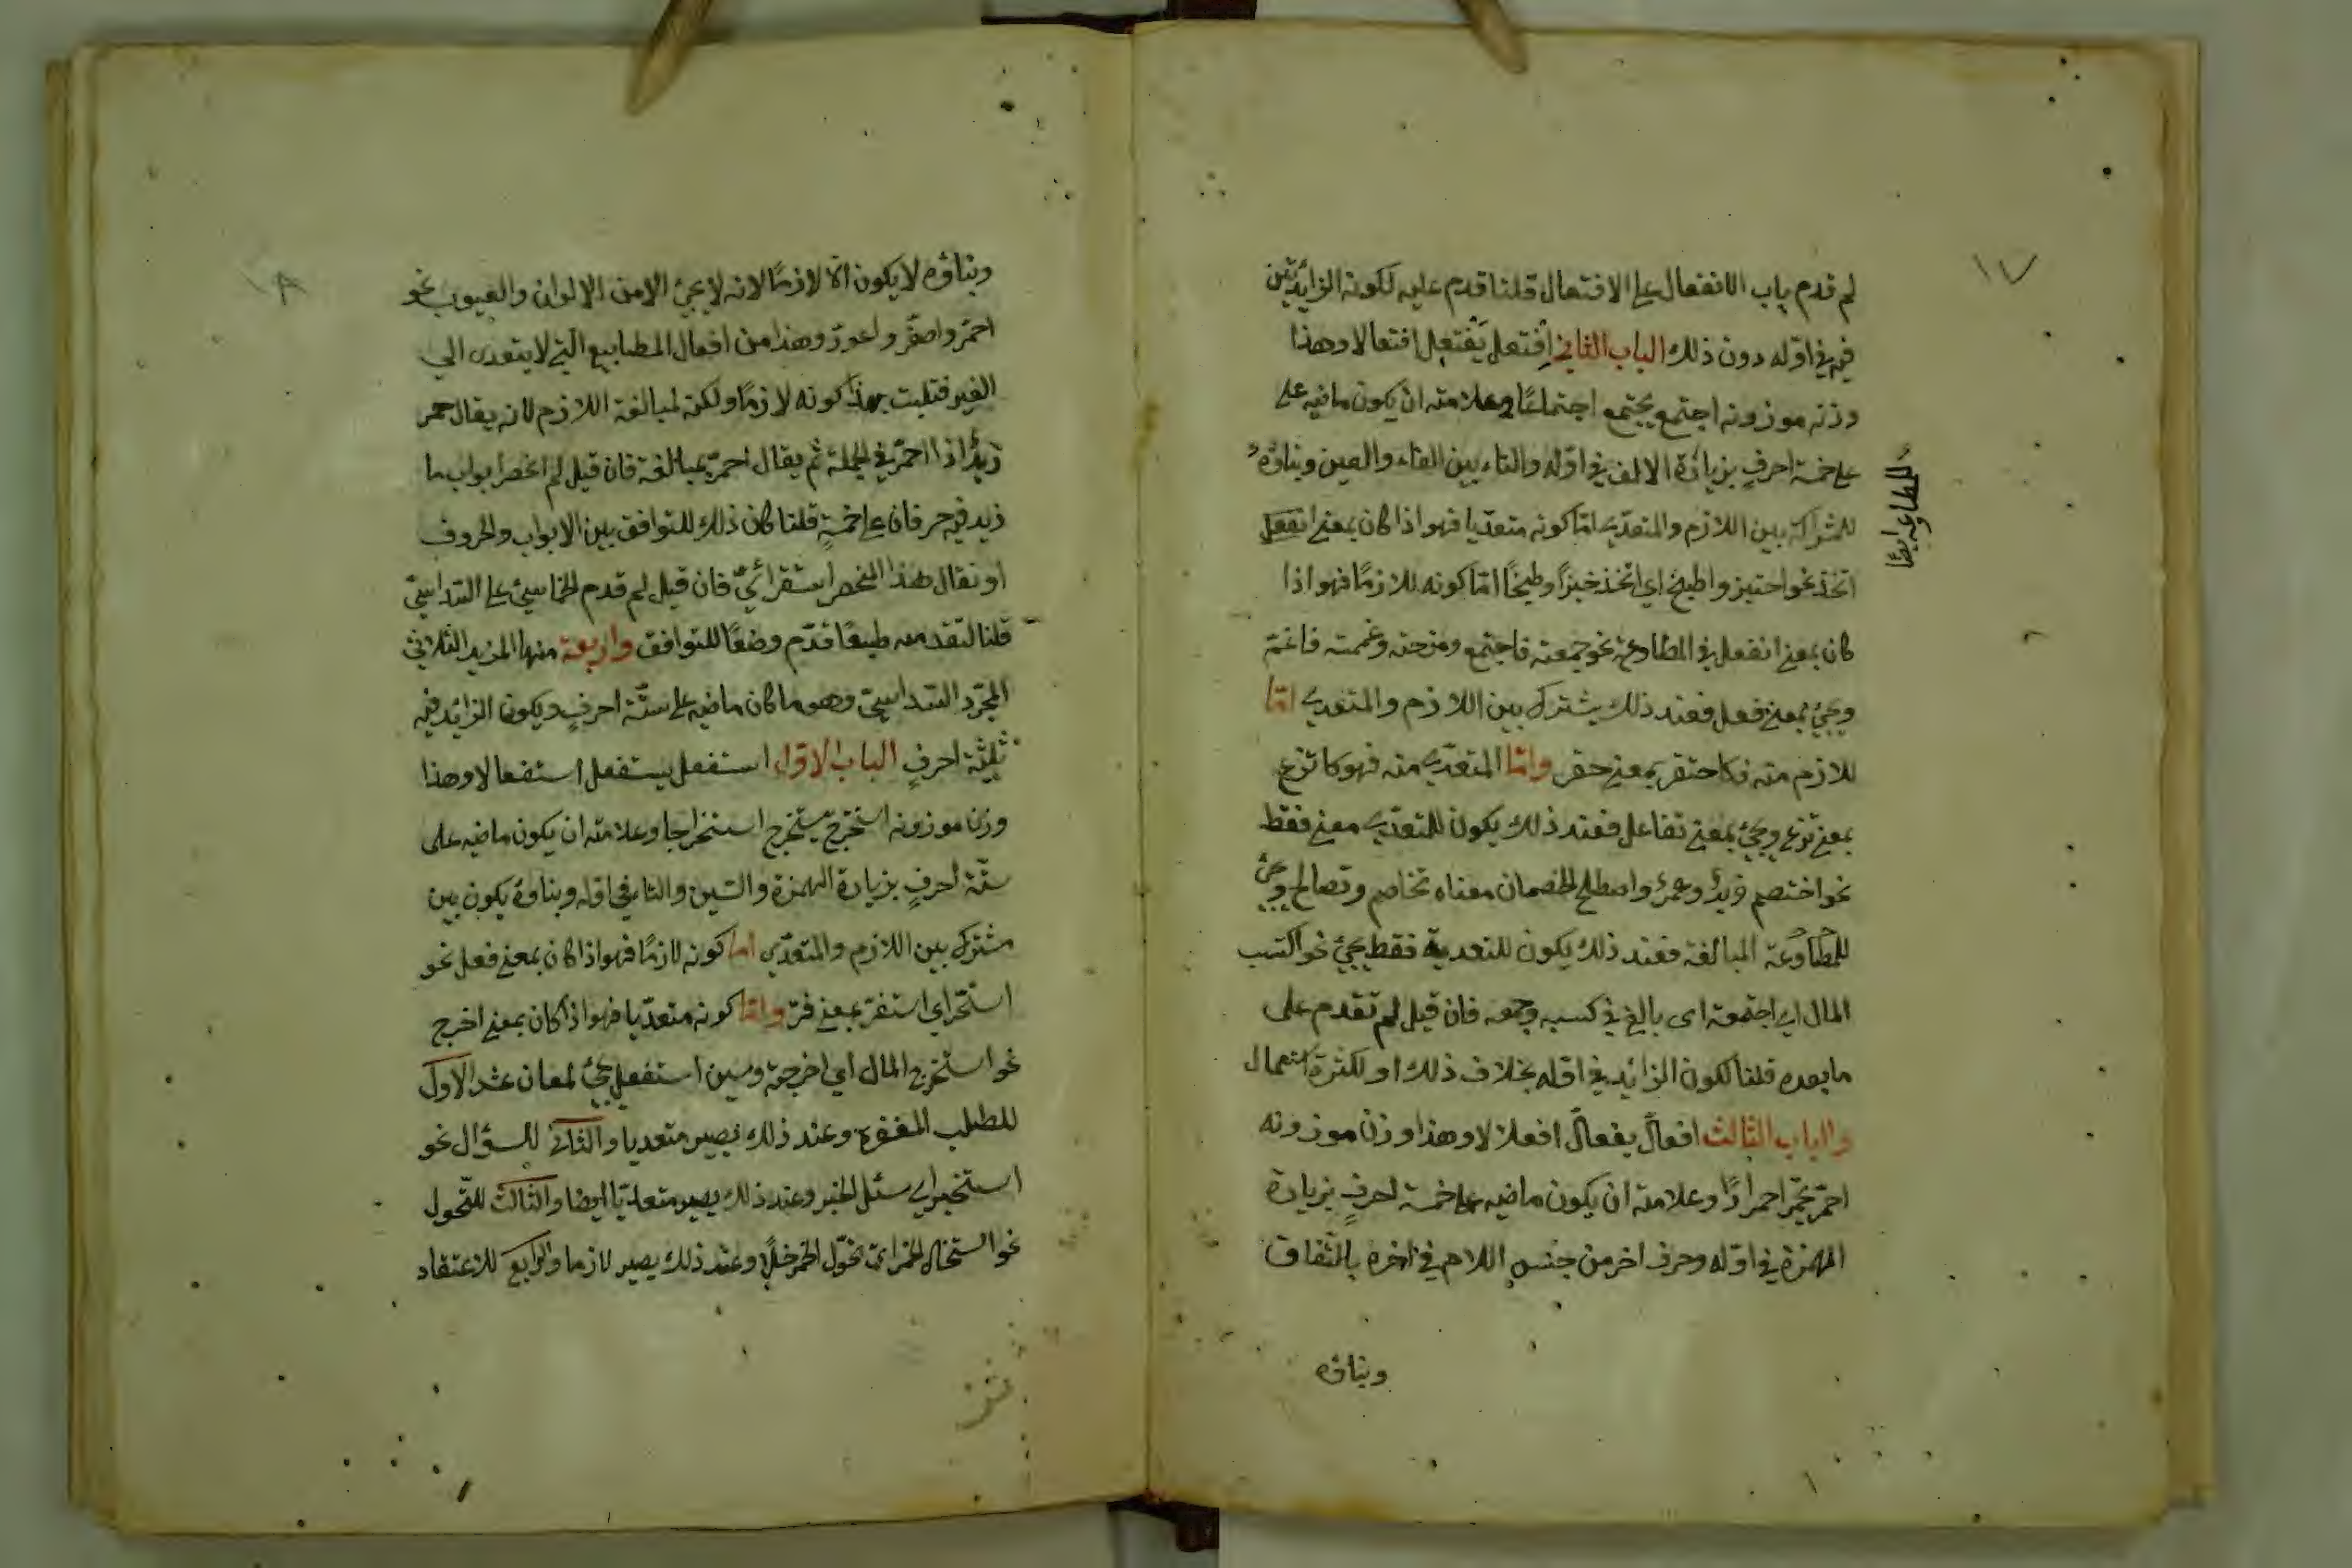 ١٧
لم قدم باب الانفعال على الافتعال قلنا قدم عليه لكونه الزائدتين
فيه في اوّله دون ذلك الباب الثاني اِفتعل يَفتعِل افتعالا وهذا
وزنه موزونه اجتمع يجتمع اجتماعًا وعلامته ان يكون ماضيه على
على خمسة احرفٍ بزيادة الالف في اوّله والتاء بين الفاء والعين وبناؤه
للمشراكة بين اللازم والمتعدّي امّا كونه متعدّيا فهو اذا كان بمعنى انفعل
للمطاوعة ايضًا
اتخذ نحو اختبز واطبخ اي اتخذ خبزًا وطبخًا امّا كونه للازمًا فهو اذا
كان بمعنى انفعل في المطاوعة نحو جمعته فاجتمع ومزحته وغممته فاغتم
ويجئ بمعنى فعل فعند ذلك يشترك بين اللازم والمتعدي امّا
للازم منه فكاحتقر بمعنى حقر وامّا المتعدّي منه فهو كانتزع
بمعنى نزع ويجئ بمعنى تفاعل فعند ذلك يكون للمتعدّي معنى فقط
نحو اختصم زيدٌ وعمرٌ واصطلح الخصمان معناه تخاصم وتصالح ويجئ
للمطاوعة المبالغة فعند ذلك يكون للتعدية فقط يجئ نحو اكتسب
المال اي اجتمعته اى بالغ في كسبه وجمعه فان قيل لم تقدم على
ما بعده قلنا لكون الزائد في اوّله بخلاف ذلك او لكثرة استعمال
والباب الثالث افعالّ يفعالّ افعلالا وهذا وزن موزونه
احمرّ يحمرّ احمرارًا وعلامته ان يكون ماضيه على خمسة احرفٍ بزيادة
الهمزة في اوّله وحرف اخر من جنس اللام في اخره بالتّفاق
وبناؤه
١٨
وبناؤه لا يكون الّا لازمًا لانه لا يجئ الا من الالوان والعيوب نحو
احمرّ واصفرّ واعورّ وهذا من افعال المطابيع التي لا يتعدى الي
الغير فثبت بهذا كونه لازمًا ولكنه لمبالغة اللازم لانه يقال حمر
زيدٌ اذا احمرّ في الجملة ثم يقال احمرّ بمبالغة فان قيل لم انحصر ابواب ما
زيد فيه حرفان على خمسةٍ قلنا كان ذلك للتوافق بين الابواب والحروف
او نقال هذا المنحصر استقرائيّ فان قيل لم قدم الخماسيّ على السّداسيّ
قلنا لتقدمه طبعًا قدّم وضعًا للتوافق واربعة منها المزيد الثلاثيّ
المجرّد السّداسيّ وهو ما كان ماضيه على ستّة احرفٍ ويكون الزائد فيه
ثلثة احرفٍ الباب الاوّل استفعل يستفعل استفعالا وهذا
وزن موزونه استخرج يستخرج استخراجا وعلامته ان يكون ماضيه على
ستّة احرفٍ بزيادة الهمزة والسّين والتاء في اوّله وبناؤه يكون بين
مشترك بين اللازم والمتعدّي اما كونه لازمًا فهو اذا كان بمعنى فعل نحو
اي استقرّ بمعنى قرّ وامّا كونه متعدّيا فهو اذا كان بمعنى اخرج
نحو استخرج المال اي اخرجته وسين استفعل يجئ لمعان عشر الاول
للطلب المغفرة وعند ذلك يصير متعديا والثاني للسؤال نحو
استخبر اي سئل الخبر وعند ذلك يصير متعدّيا ايضا والثالث للتّحول
نحو استخال الخمر اى تحوّل الخمر خلًّا وعند ذلك يصير لازما والرابع للاعتقاد